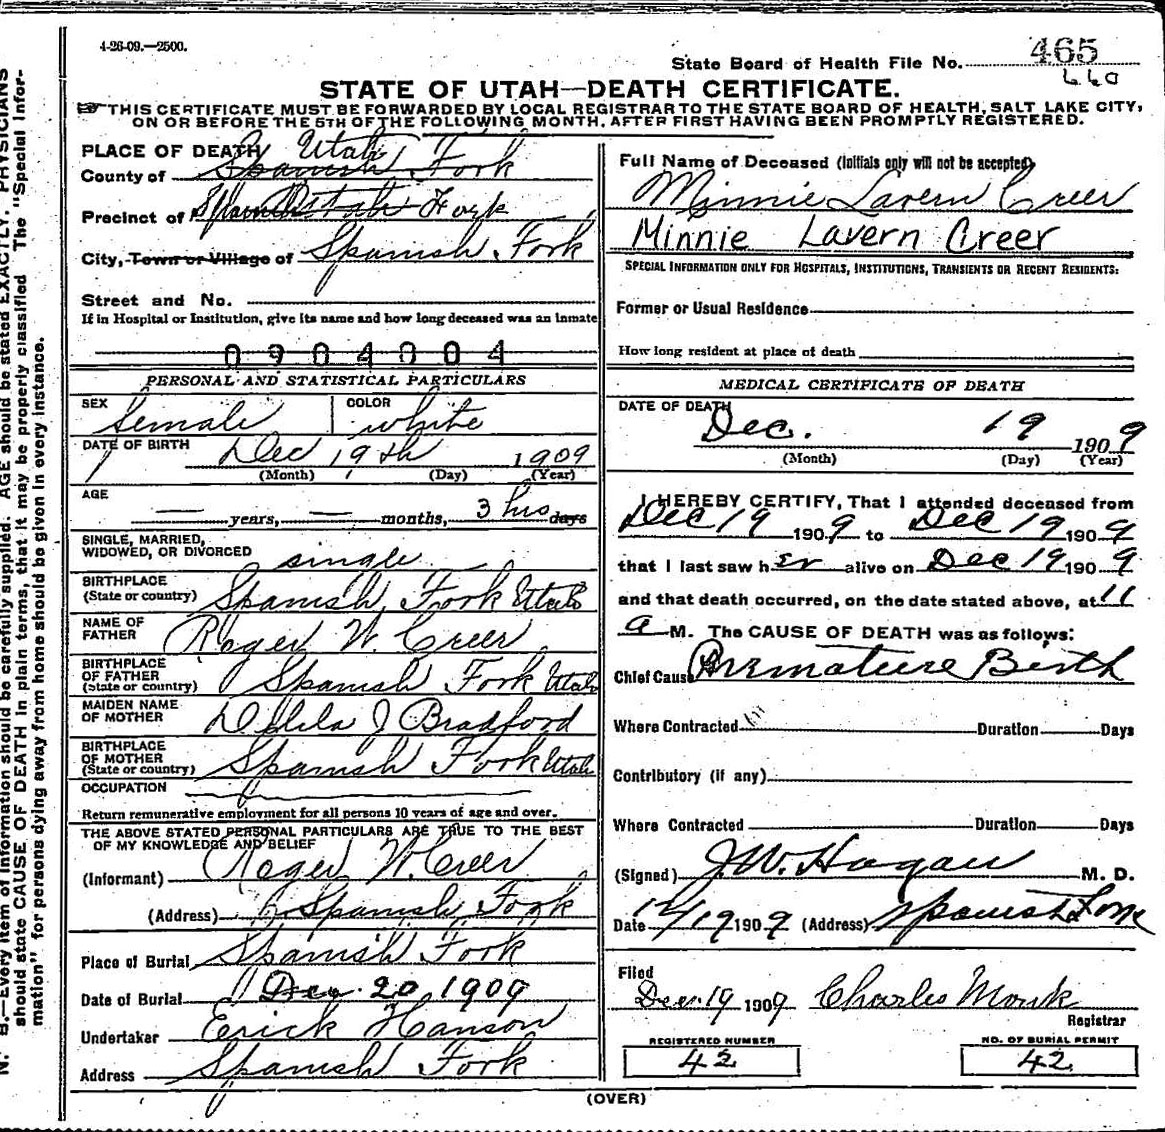 4-26-09.—2500.
State Board of Health File No. 465
660
STATE OF UTAH—DEATH CERTIFICATE.
THIS CERTIFICATE MUST BE FORWARDED BY LOCAL REGISTRAR TO THE STATE BOARD OF HEALTH, SALT LAKE CITY,
ON OR BEFORE THE 5TH OF THE FOLLOWING MONTH, AFTER FIRST HAVING BEEN PROMPTLY REGISTERED.
PLACE OF DEATH
County of Utah Spanish Fork
Precinct of Spanish Utah Fork
City, Town or Village of Spanish Fork
Street and No.
If in Hospital or Institution, give its name and how long deceased was an inmate
0904004
PERSONAL AND STATISTICAL PARTICULARS
SEX Female COLOR white
DATE OF BIRTH Dec 19th 1909
(Month) (Day) (Year)
AGE
— years, — months, 3 hrs days
SINGLE, MARRIED,
WIDOWED, OR DIVORCED single
BIRTHPLACE
(State or country) Spanish Fork Utah
NAME OF
FATHER Roger W. Creer
BIRTHPLACE
OF FATHER
(State or country) Spanish Fork Utah
MAIDEN NAME
OF MOTHER J Bradford
BIRTHPLACE
OF MOTHER
(State or country) Spanish Fork Utah
OCCUPATION
Return remunerative employment for all persons 10 years of age and over.
THE ABOVE STATED PERSONAL PARTICULARS ARE TRUE TO THE BEST
OF MY KNOWLEDGE AND BELIEF
(Informant) Roger W. Creer
(Address) Spanish Fork
Place of Burial Spanish Fork
Date of Burial Dec. 20 1909
Undertaker Erick Hanson
Address Spanish Fork
Full Name of Deceased (Initials only will not be accepted).
Minnie Lavern Creer
Minnie Lavern Creer
SPECIAL INFORMATION ONLY FOR HOSPITALS, INSTITUTIONS, TRANSIENTS OR RECENT RESIDENTS:
Former or Usual Residence
How long resident at place of death
MEDICAL CERTIFICATE OF DEATH
DATE OF DEATH
Dec. 19 1909
(Month) (Day) (Year)
I HEREBY CERTIFY, That I attended deceased from
Dec 19 1909 to Dec 19 1909
that I last saw her alive on Dec 19 1909
and that death occurred, on the date stated above, at 11
a M. The CAUSE OF DEATH was as follows:
Chief Cause Premature Birth
Where Contracted Duration Days
Contributory (if any)
Where Contracted Duration Days
(Signed) J. W. Hagan M. D.
Date 12/19 1909 (Address) Spanish Fork
Filed
Dec. 19 1909 Charles Monk
Registrar
REGISTERED NUMBER
42
NO. OF BURIAL PERMIT
42
(OVER)
N. B.—Every item of information should be carefully supplied. AGE should be stated EXACTLY. PHYSICIANS
should state CAUSE OF DEATH in plain terms, that it may be properly classified. The "Special Infor-
mation" for persons dying away from home should be given in every instance.